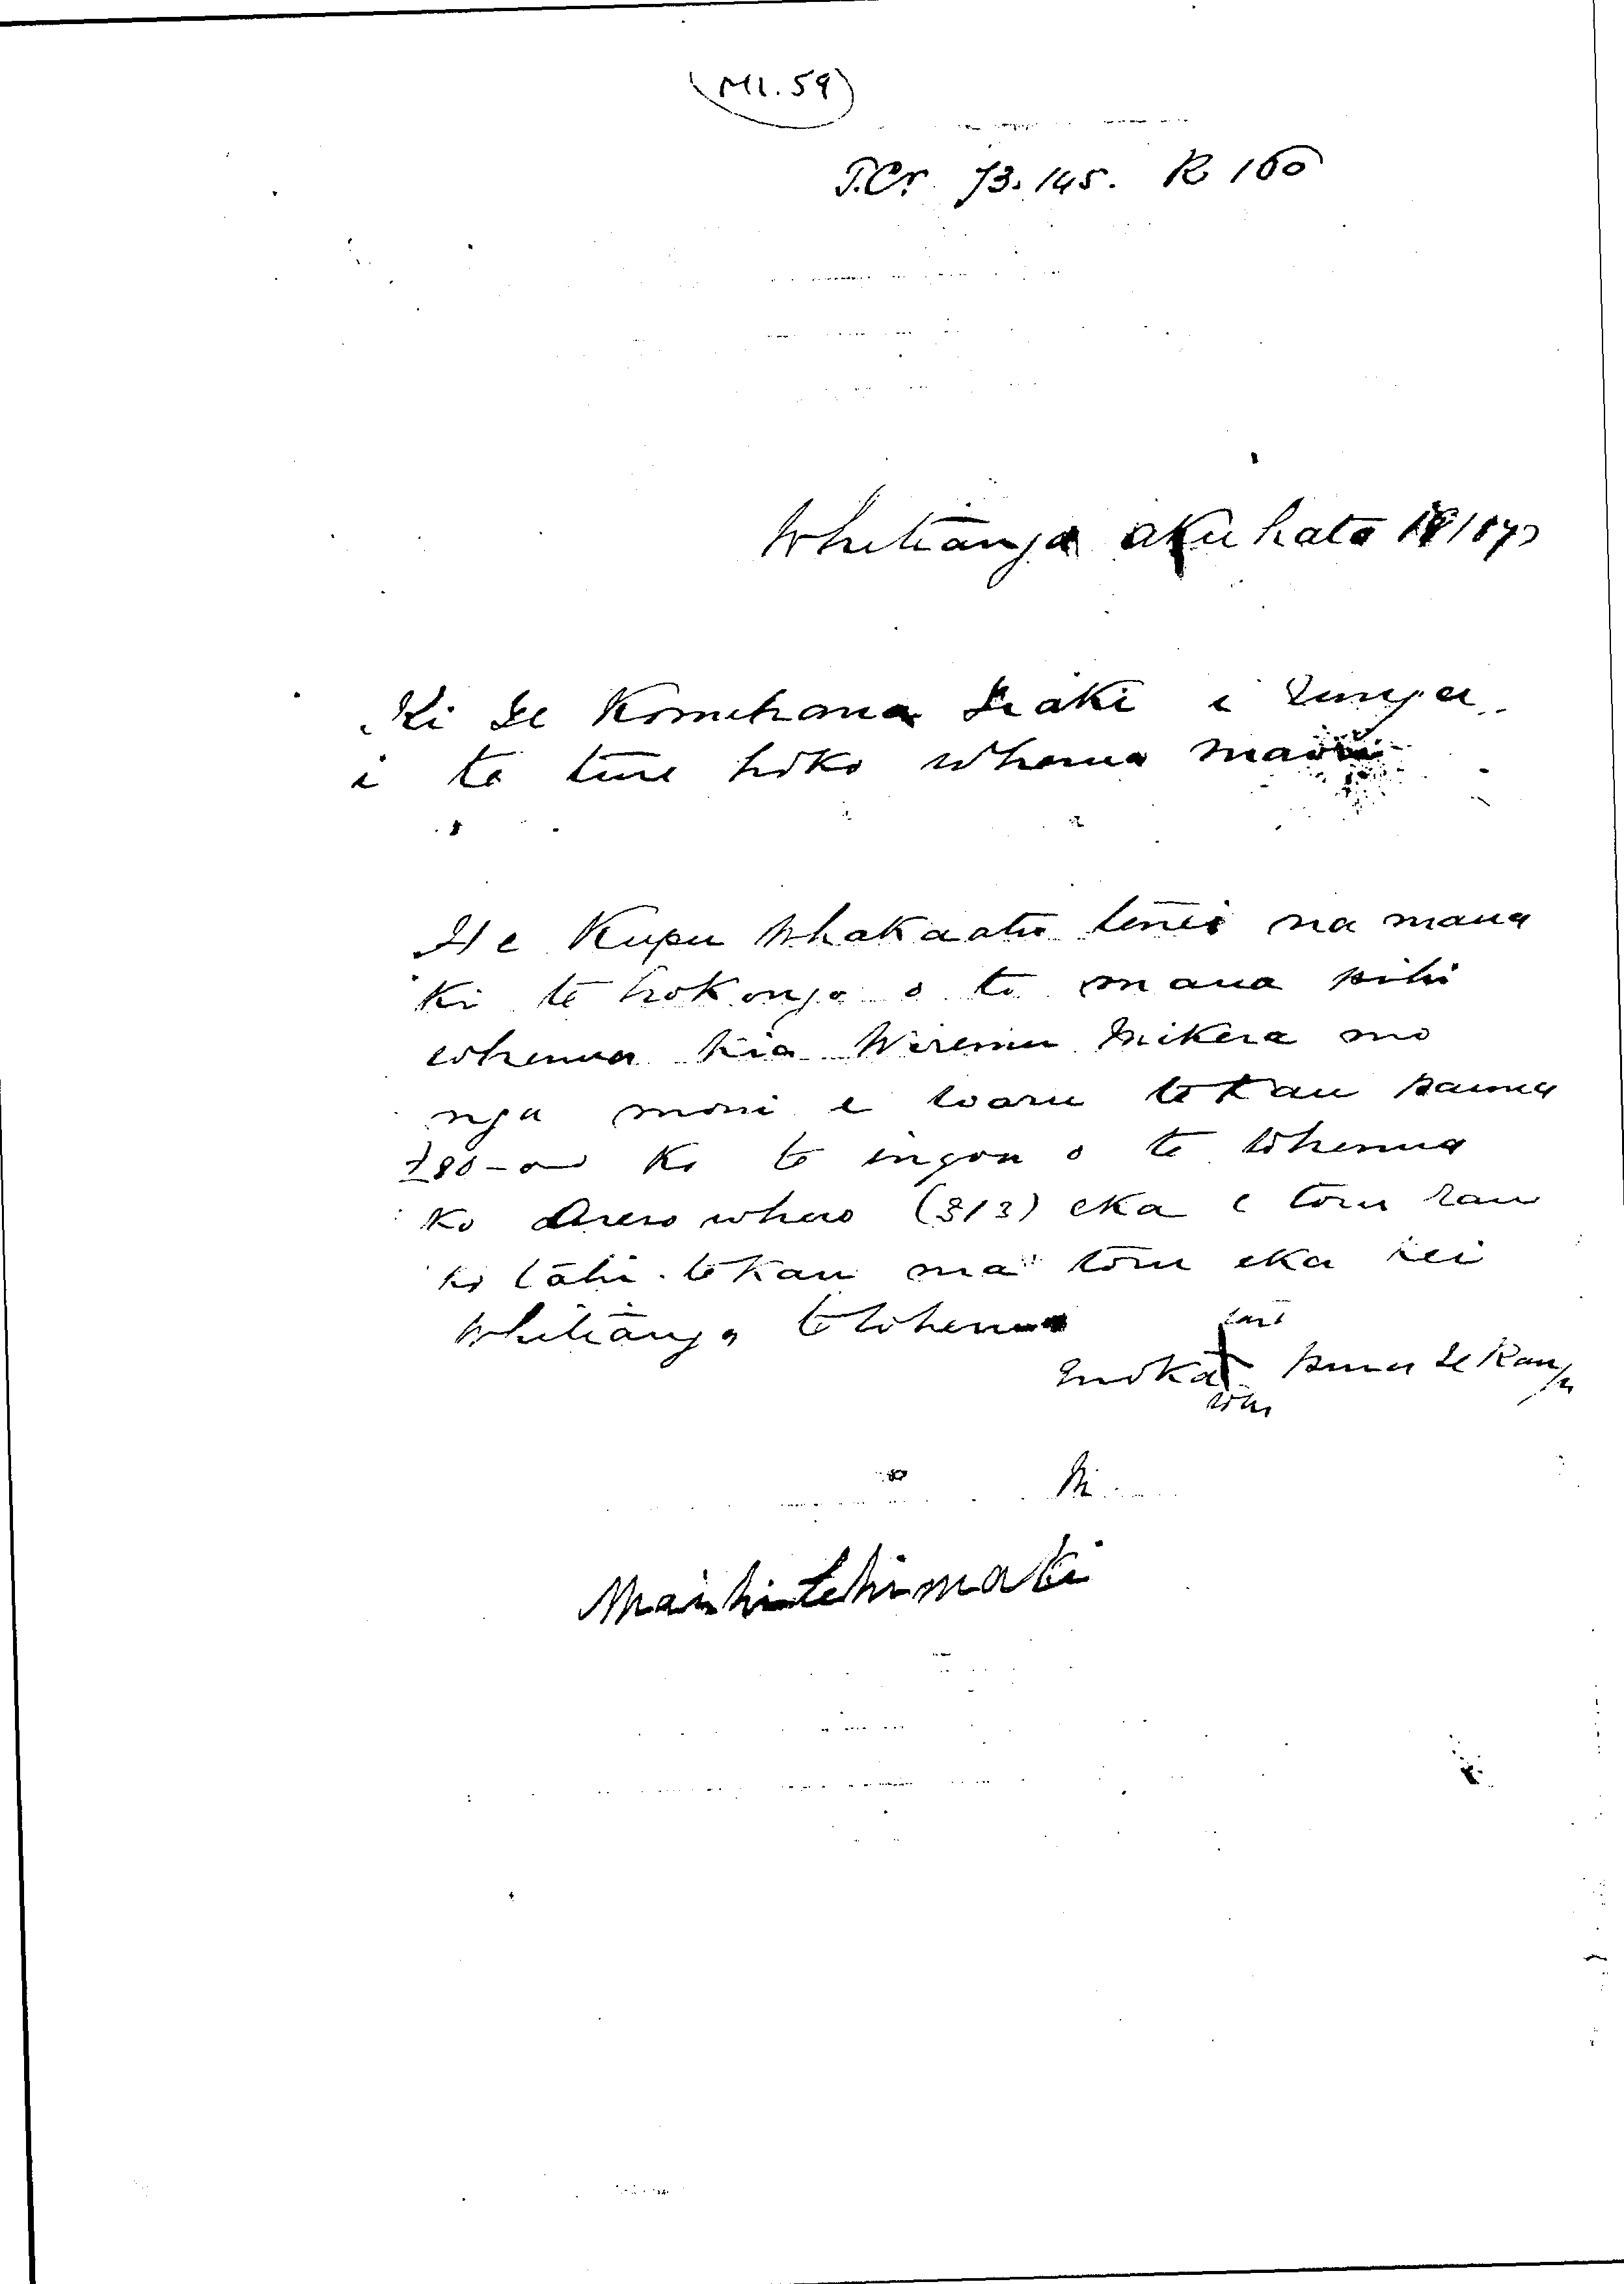 (M1.59)
T.Cr. 73.145. R 160
Whitianga akuhata 18/1873
Ki Te Komihana Tiaki i runga
i te ture hoko whenua maori
He Kupu Whakaatu tenei na maua
ki te hokonga o to maua pihi
whenua kia Wiremu Mikera mo
nga moni e waru tekau pauna
£80-0-0 Ko te ingoa o te Whenua
ko Arero whero (313) eka e toru rau
ko tahi tekau ma toru eka kei
Whitianga te Whenua
Enoka X Puna Te Rangi
Maihi te hi maki